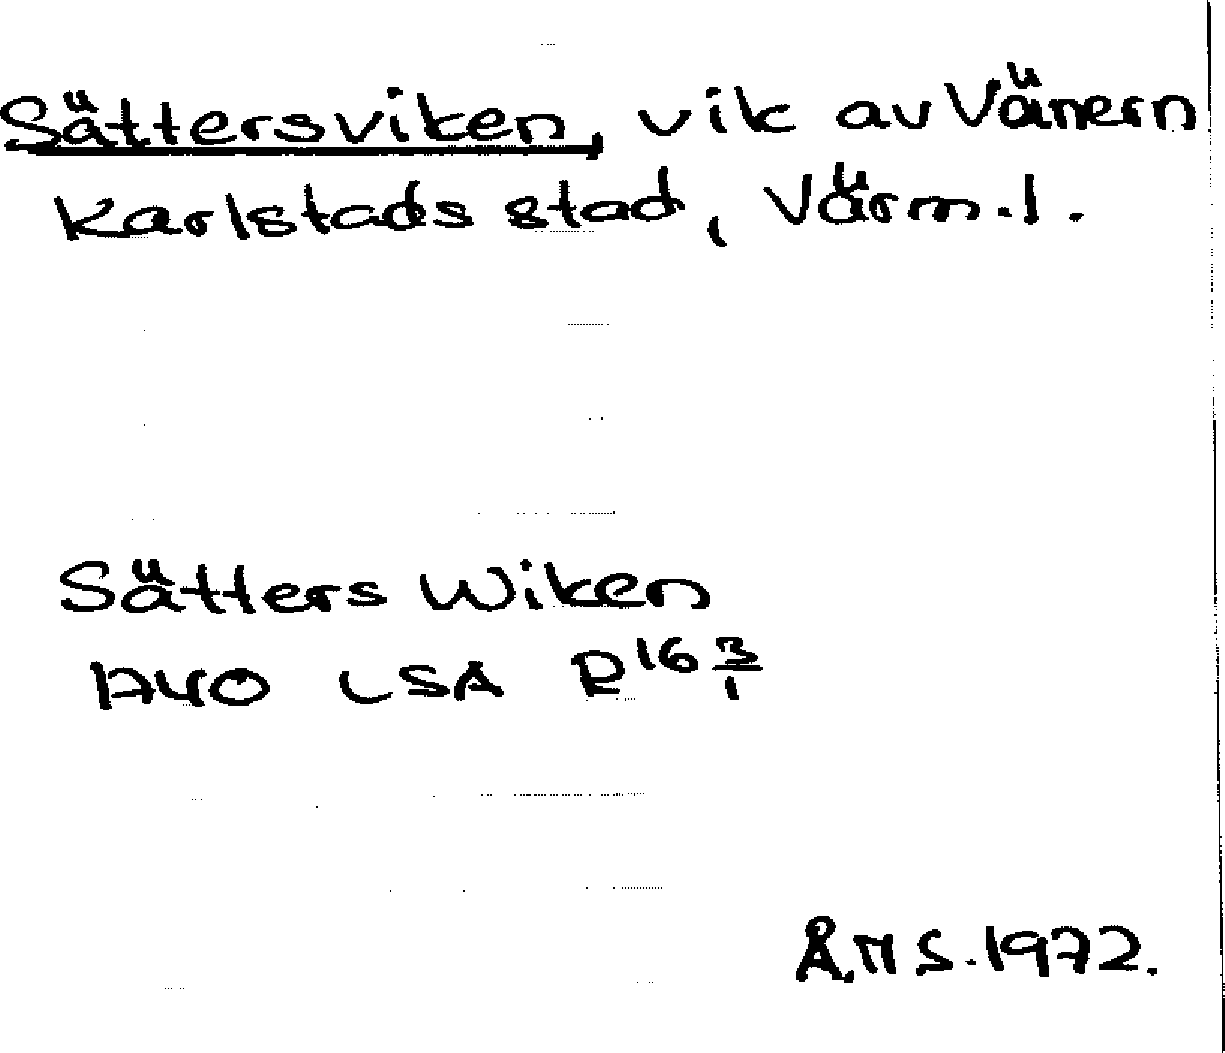 Sättersviken, vik av Vänern
Karlstads stad, Värm.l.
Sätters Wiken
1740 LSA R16 3/1
Å.N S. 1972.